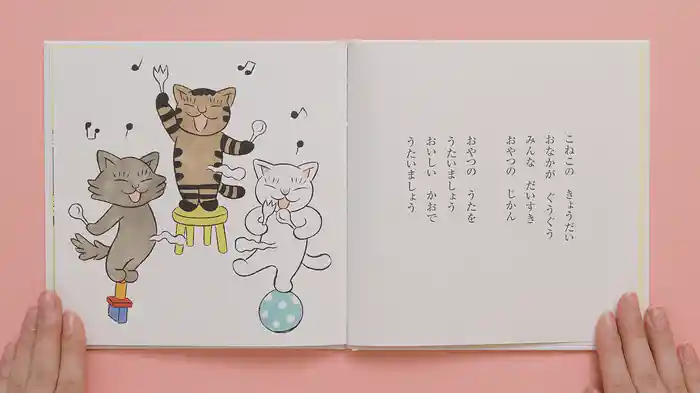 こねこの　きょうだい
おなかが　ぐうぐう
みんな　だいすき
おやつの　じかん
おやつの　うたを
うたいましょう
おいしい　かおで
うたいましょう